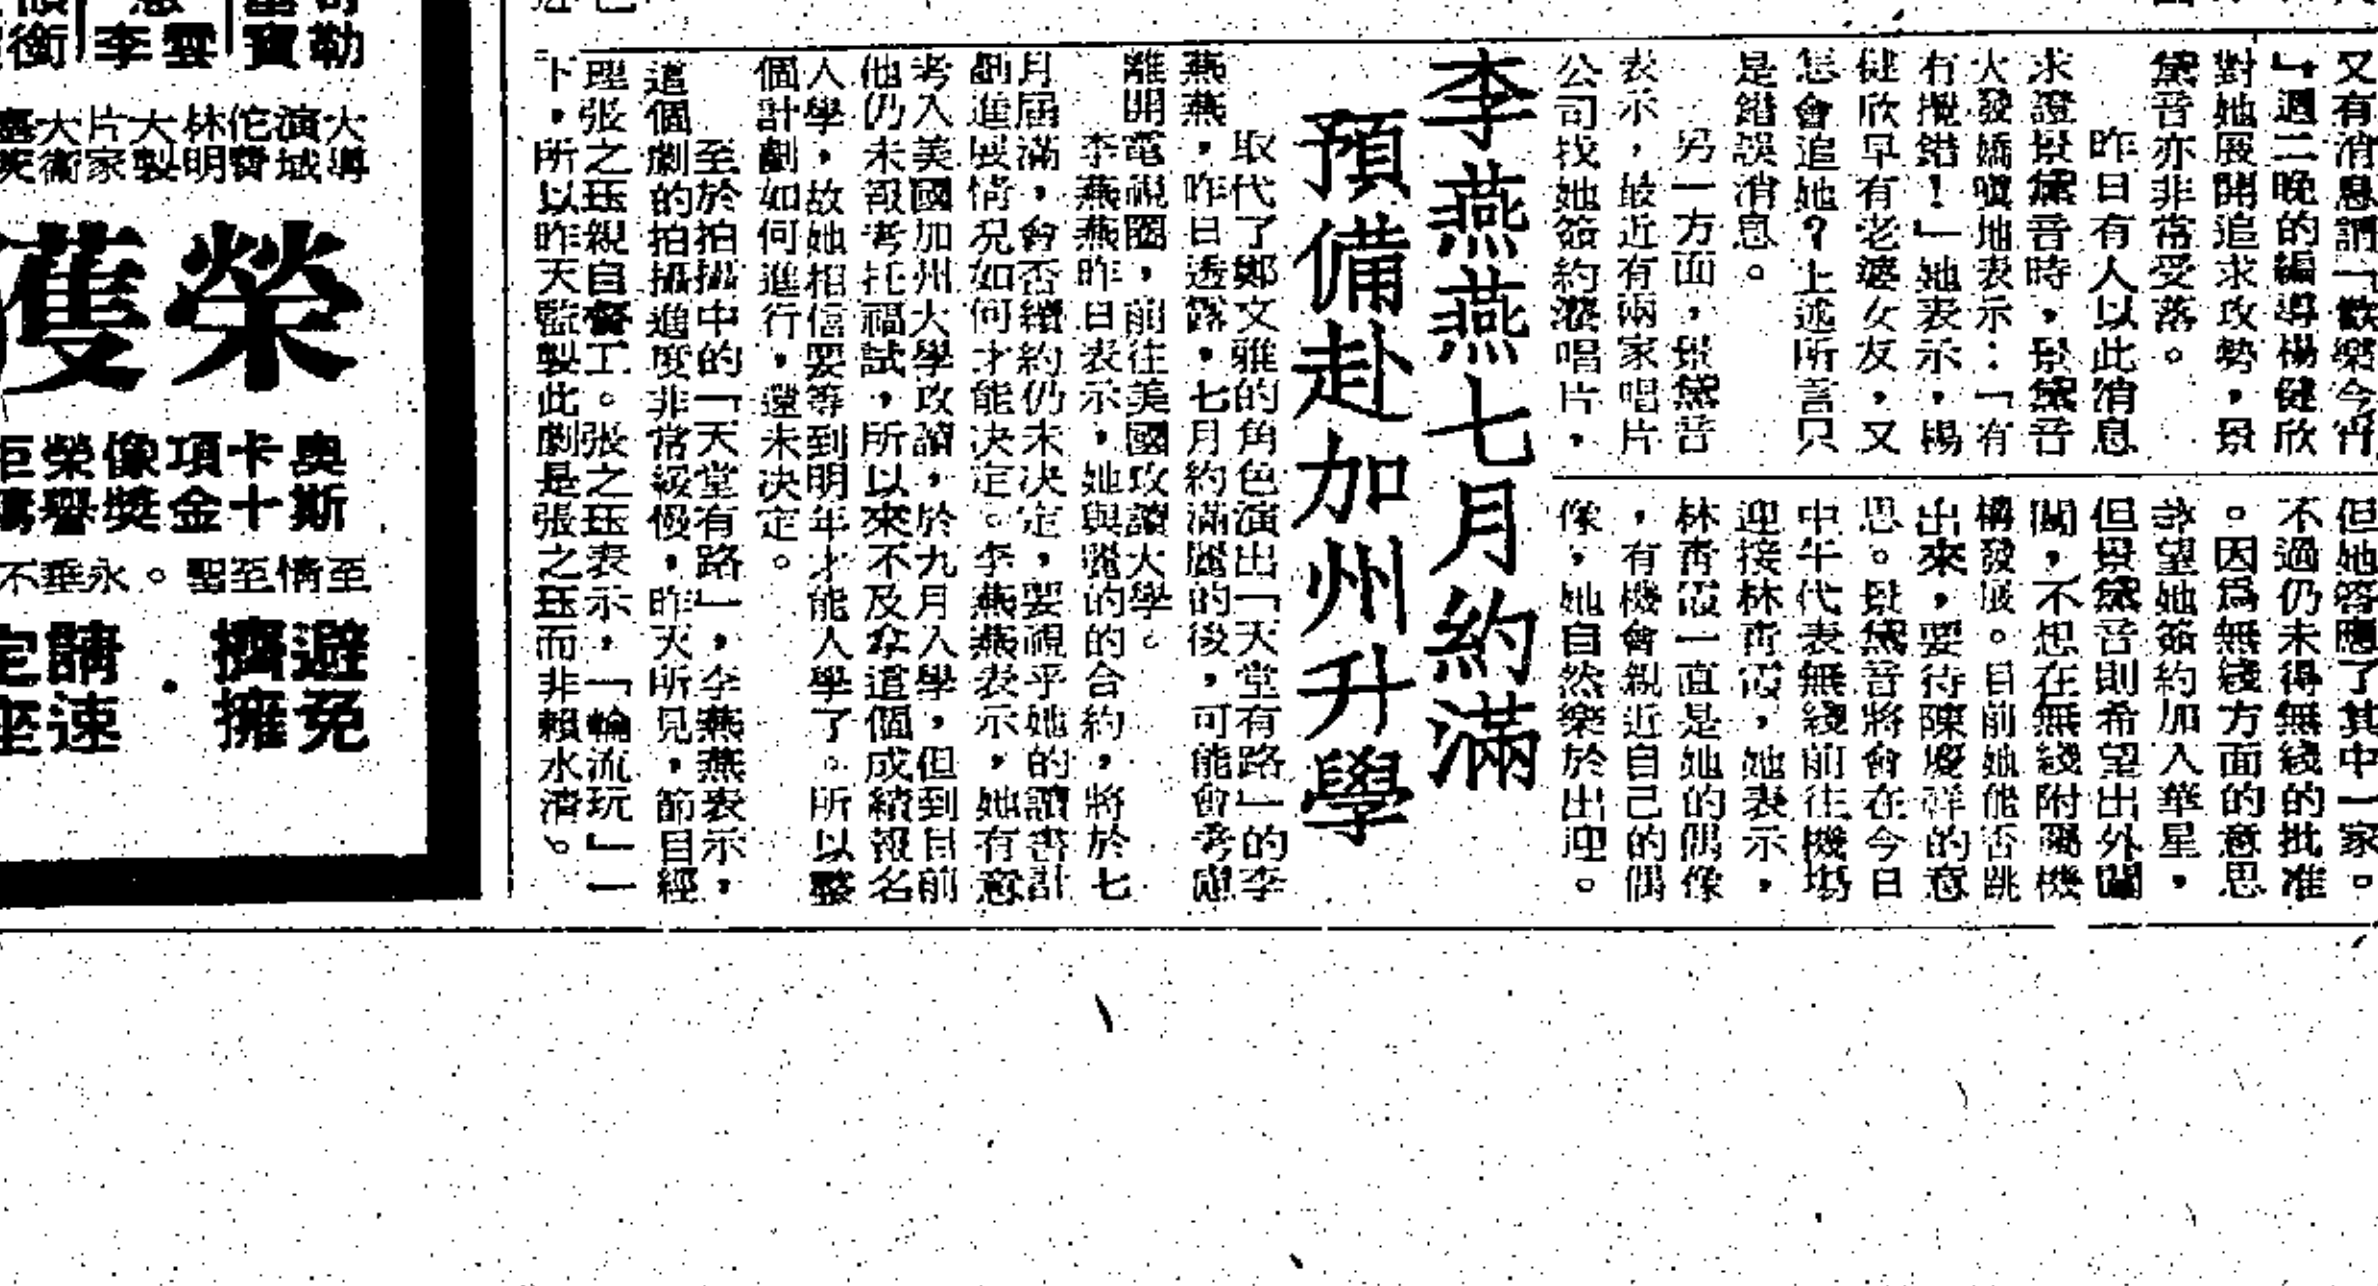 又有消息謂「歡樂今宵
」週二晚的編導楊健欣
對她展開追求攻勢，景
黛音亦非常受落。
昨日有人以此消息
求證景黛音時，景黛音
大發嬌嗔地表示：「有
有攪錯！」她表示，楊
健欣早有老婆女友，又
怎會追她？上述所言只
是錯誤消息。
另一方面，景黛音
表示，最近有兩家唱片
公司找她簽約灌唱片，
但她答應了其中一家。
不過仍未得無綫的批准
。因為無綫方面的意思
希望她簽約加入華星，
但景黛音則希望出外闖
闖，不想在無綫附屬機
構發展。目前她能否跳
出來，要待陳慶祥的意
思。景黛音將會在今日
中午代表無綫前往機場
迎接林青霞，她表示，
林青霞一直是她的偶像
，有機會親近自己的偶
像，她自然樂於出迎。
李燕燕七月約滿
預備赴加州升學
取代了鄭文雅的角色演出「天堂有路」的李
燕燕，昨日透露，七月約滿麗的後，可能會考慮
離開電視圈，前往美國攻讀大學。
李燕燕昨日表示，她與麗的的合約，將於七
月屆滿，會否續約仍未決定，要視乎她的讀書計
劃進展情況如何才能決定。李燕燕表示，她有意
考入美國加州大學攻讀，於九月入學，但到目前
他仍未報考托福試，所以來不及拿這個成績報名
入學，故她相信要等到明年才能入學了。所以整
個計劃如何進行，還未決定。
至於拍攝中的「天堂有路」，李燕燕表示，
這個劇的拍攝進度非常緩慢，昨天所見，節目經
理張之珏親自督工。張之珏表示，「輪流玩」一
下，所以昨天監製此劇是張之珏而非賴水清。
榮獲
奧斯
卡十
項金
像獎
榮譽
至情至聖。永垂不
避免
擠擁
·
請速
定座